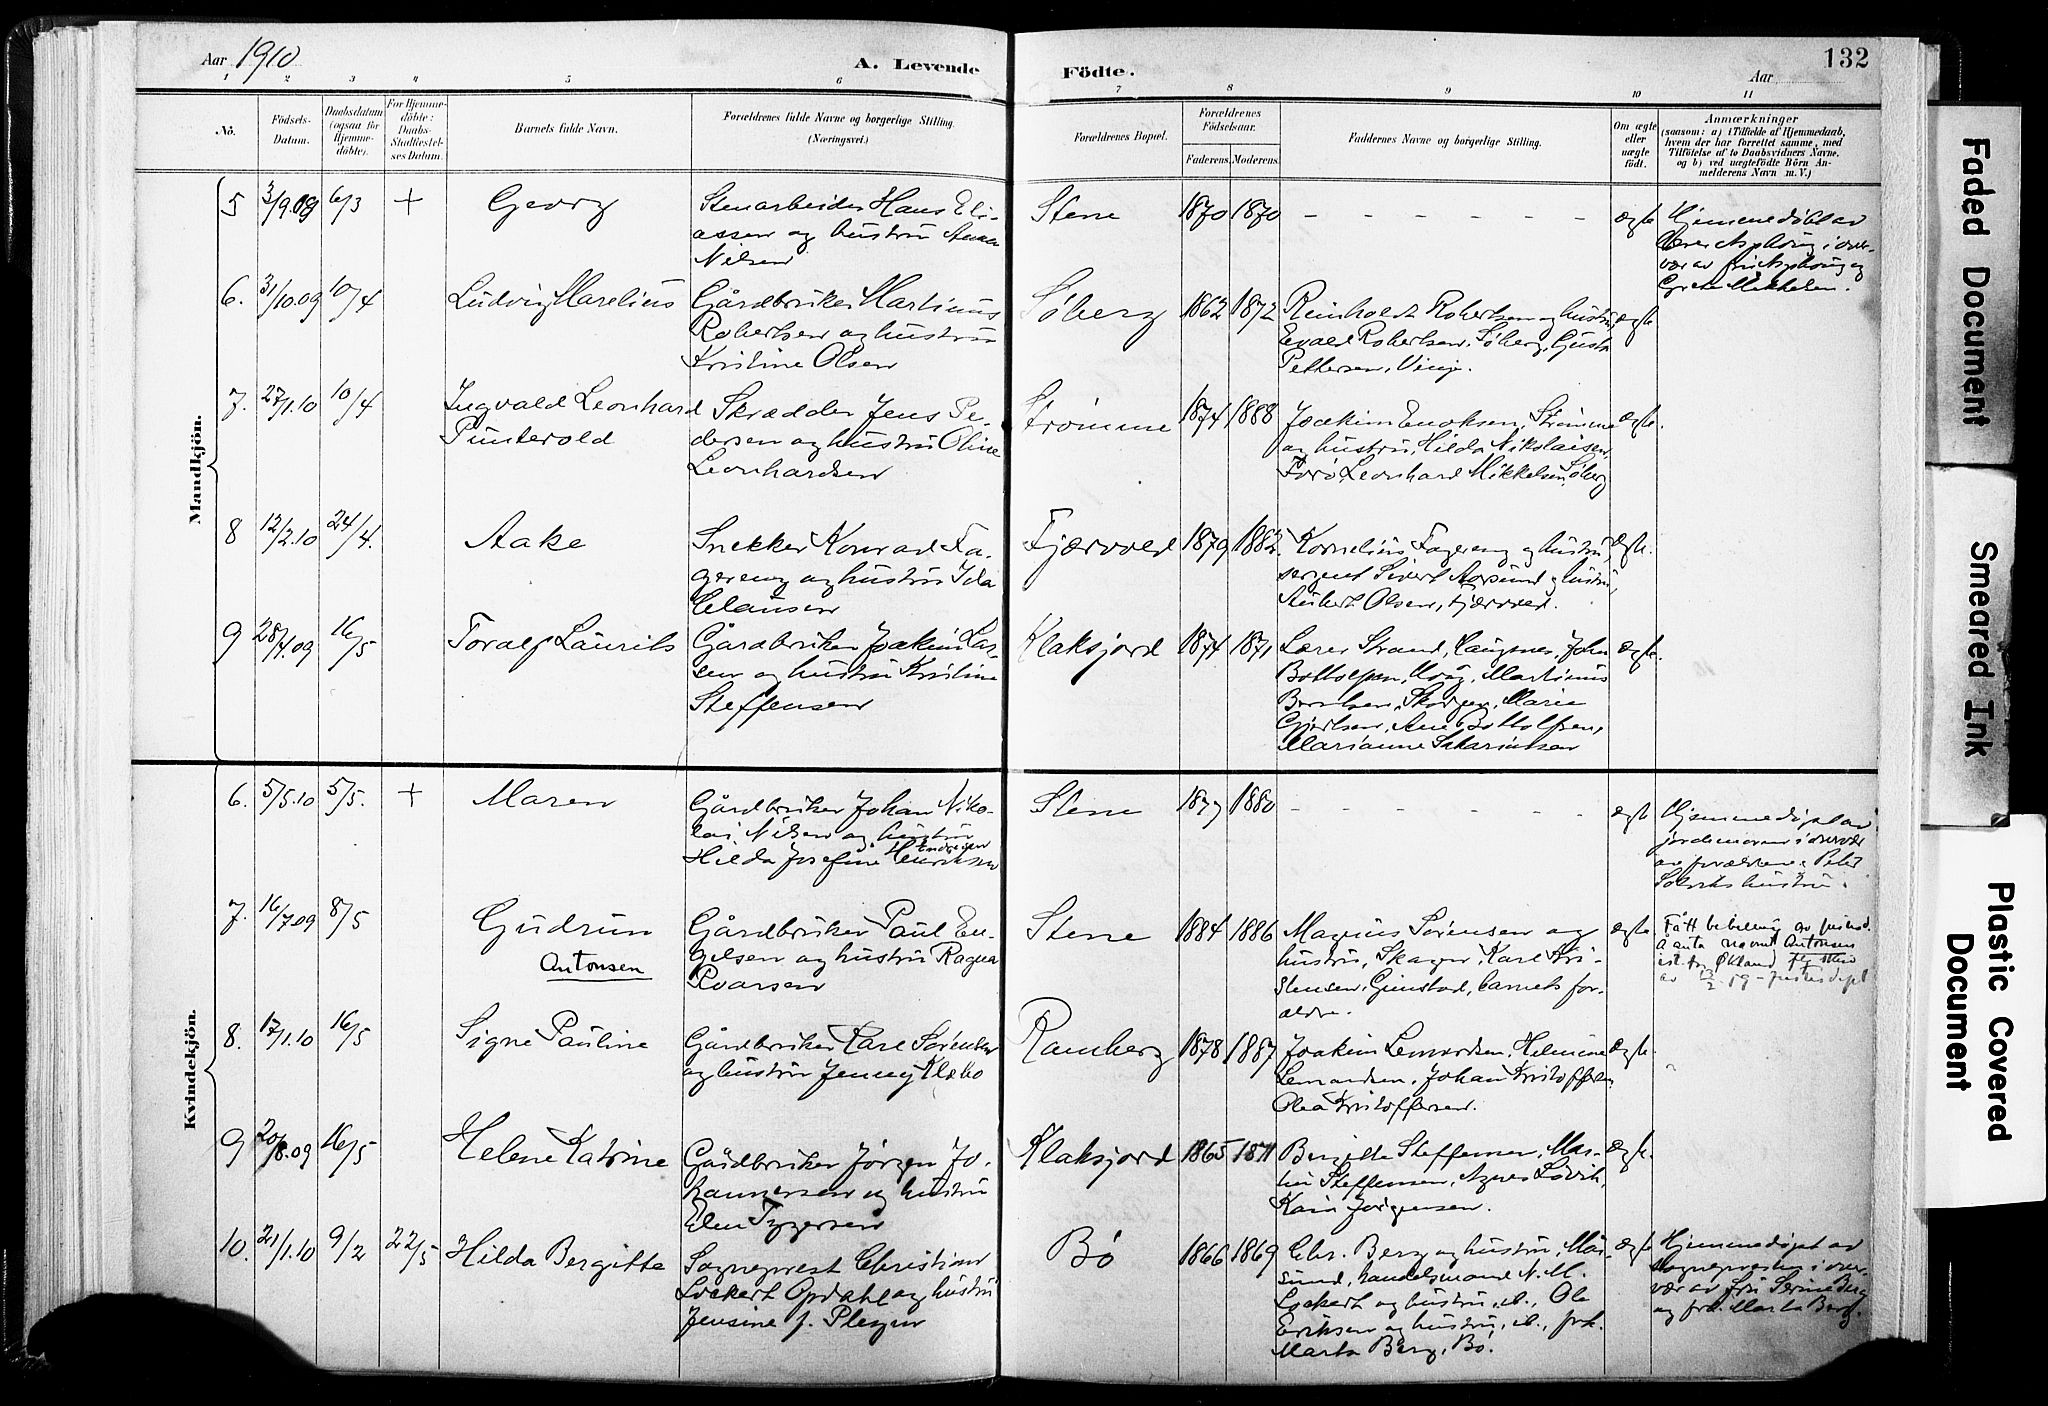 Aar 1910
A. Levende
Födte.
Aar
132
2 3 4 5 6 7 8 9 10 11
Nö.
Födsels-
Datum.
Daabsdatum
(ogsaa for
Hjemme-
döbte).
For Hjemme-
döbte:
Daabs-
Stadfæstel-
ses Datum.
Barnets fulde Navn.
Forældrenes fulde Navne og borgerlige Stilling.
(Næringsvei.)
Forældrenes Bopæl.
Forældrenes
Födselsaar.
Faderens. Moderens.
Faddernes Navne og borgerlige Stilling.
Om ægte
eller
uægte
födt.
Anmærkninger
(saasom: a) i Tilfælde af Hjemmedaab,
hvem der har forrettet samme, med
Tilföielse af to Daabsvidners Navne,
og b) ved uægtefödte Börn An-
melderens Navn m. V.)
Mandkjön.
5 3/9.09 6/3 + Georg
Stenarbeider Hans Eli-
assen og hustru Anna
Nilsen
Stene 1870 1870 - - - - - - - ægte
Hjemmedöbt av
6. 31/10.09 10/4 Ludvig Marelius
Gårdbruker Martinus
Robertsen og hustru
Kristine Olsen
Söberg 1862 1872
Reinholdt Robertsen og hustru,
Evald Robertsen, Söberg, Gusta
Pettersen, Vinje.
ægte
7. 27/1.10 10/4 Ingvald Leonhard
Puntervold
Skrædder Jens Pe-
dersen og hustru Oline
Leonhardsen
Strömme 1874 1888
Joakim Enoksen, Strömme
og hustru, Hilda Nikolaisen
Forö, Leonhard Mikkelsen, Söberg
ægte.
8 12/2.10 24/4. Aake
Snekker Konrad Fa-
gereng og hustru Ida
Clausen
Fjærvold 1879 1882
Kornelius Fagereng og hustru,
sergent Sivert Aarsund og hustru,
Olsen, Fjærvold.
ægte.
9 28/4.09 16/5 Toralf Laurits
Gårdbruker Joakim Las-
sen og hustru Kristine
Steffensen
Klaksjord 1874 1871
Lærer Strand, Langnes, John
Bottolfsen, Martinus
Berntsen, Skagen, Marie
Gjertsen, Ane Bottolfsen,
Marianne Sakariassen
ægte.
Kvindekjön.
6. 5/5.10 5/5. + Maren
Gårdbruker Johan Niko-
lai Nilsen og hustru
Endresen
Hilda Josefine Henriksen
Stene 1877 1880 - - - - - ægte
Hjemmedöpt av
jordmoren i overvær
av forældrene, Peter
Solviks hustru.
7. 16/7.09 8/5 Gudrun
Antonsen
Gårdbruker Paul En-
gelsen og hustru Ragna
Roarsen
Stene 1884 1886
Magnus Sörensen og
hustru, Skagen, Karl Kri-
stensen, Gimstad, barnets for-
ældre.
ægte.
Fått bevilling av
å anta navnet Antonsen
8. 17/1.10 16/5 Signe Pauline
Gårdbruker Karl Sörensen
og hustru Jenny Klæbo
Ramberg 1878 1887
Joakim Lenardsen, Helmine
Lenardsen, Johan Kristoffersen,
Olea Kristoffersen.
ægte.
9 20/8.09 16/5 Helene Katrine
Gårdbruker Jörgen Jo-
hannessen og hustru
Elen Tygesen
Klaksjord 1865 1871
Bergitte Steffensen, Mar-
tin Steffensen, Agnes Lövik,
Karin Jörgensen.
ægte.
10. 21/1.10 9/2 22/5 Hilda Bergitte
Sogneprest Christian
Lockert Opdahl og hustru
Jensine f. Pleym
Bö 1866 1869
Chr. Berg og hustru, Mår-
sund, handelsmand N. M.
Lockert og hustru, ib., Ole
Eriksen og hustru, ib., frk.
Marta Berg, Bö.
ægte
Hjemmedöpt av
sognepresten i over-
vær av fru Serine Berg
og frk. Marta Berg.
Faded Document
Smeared Ink
Plastic Covered
Document